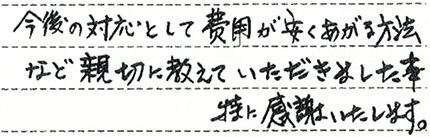 今後の対応として費用が安くあがる方法
など親切に教えていただきました事
特に感謝いたします。